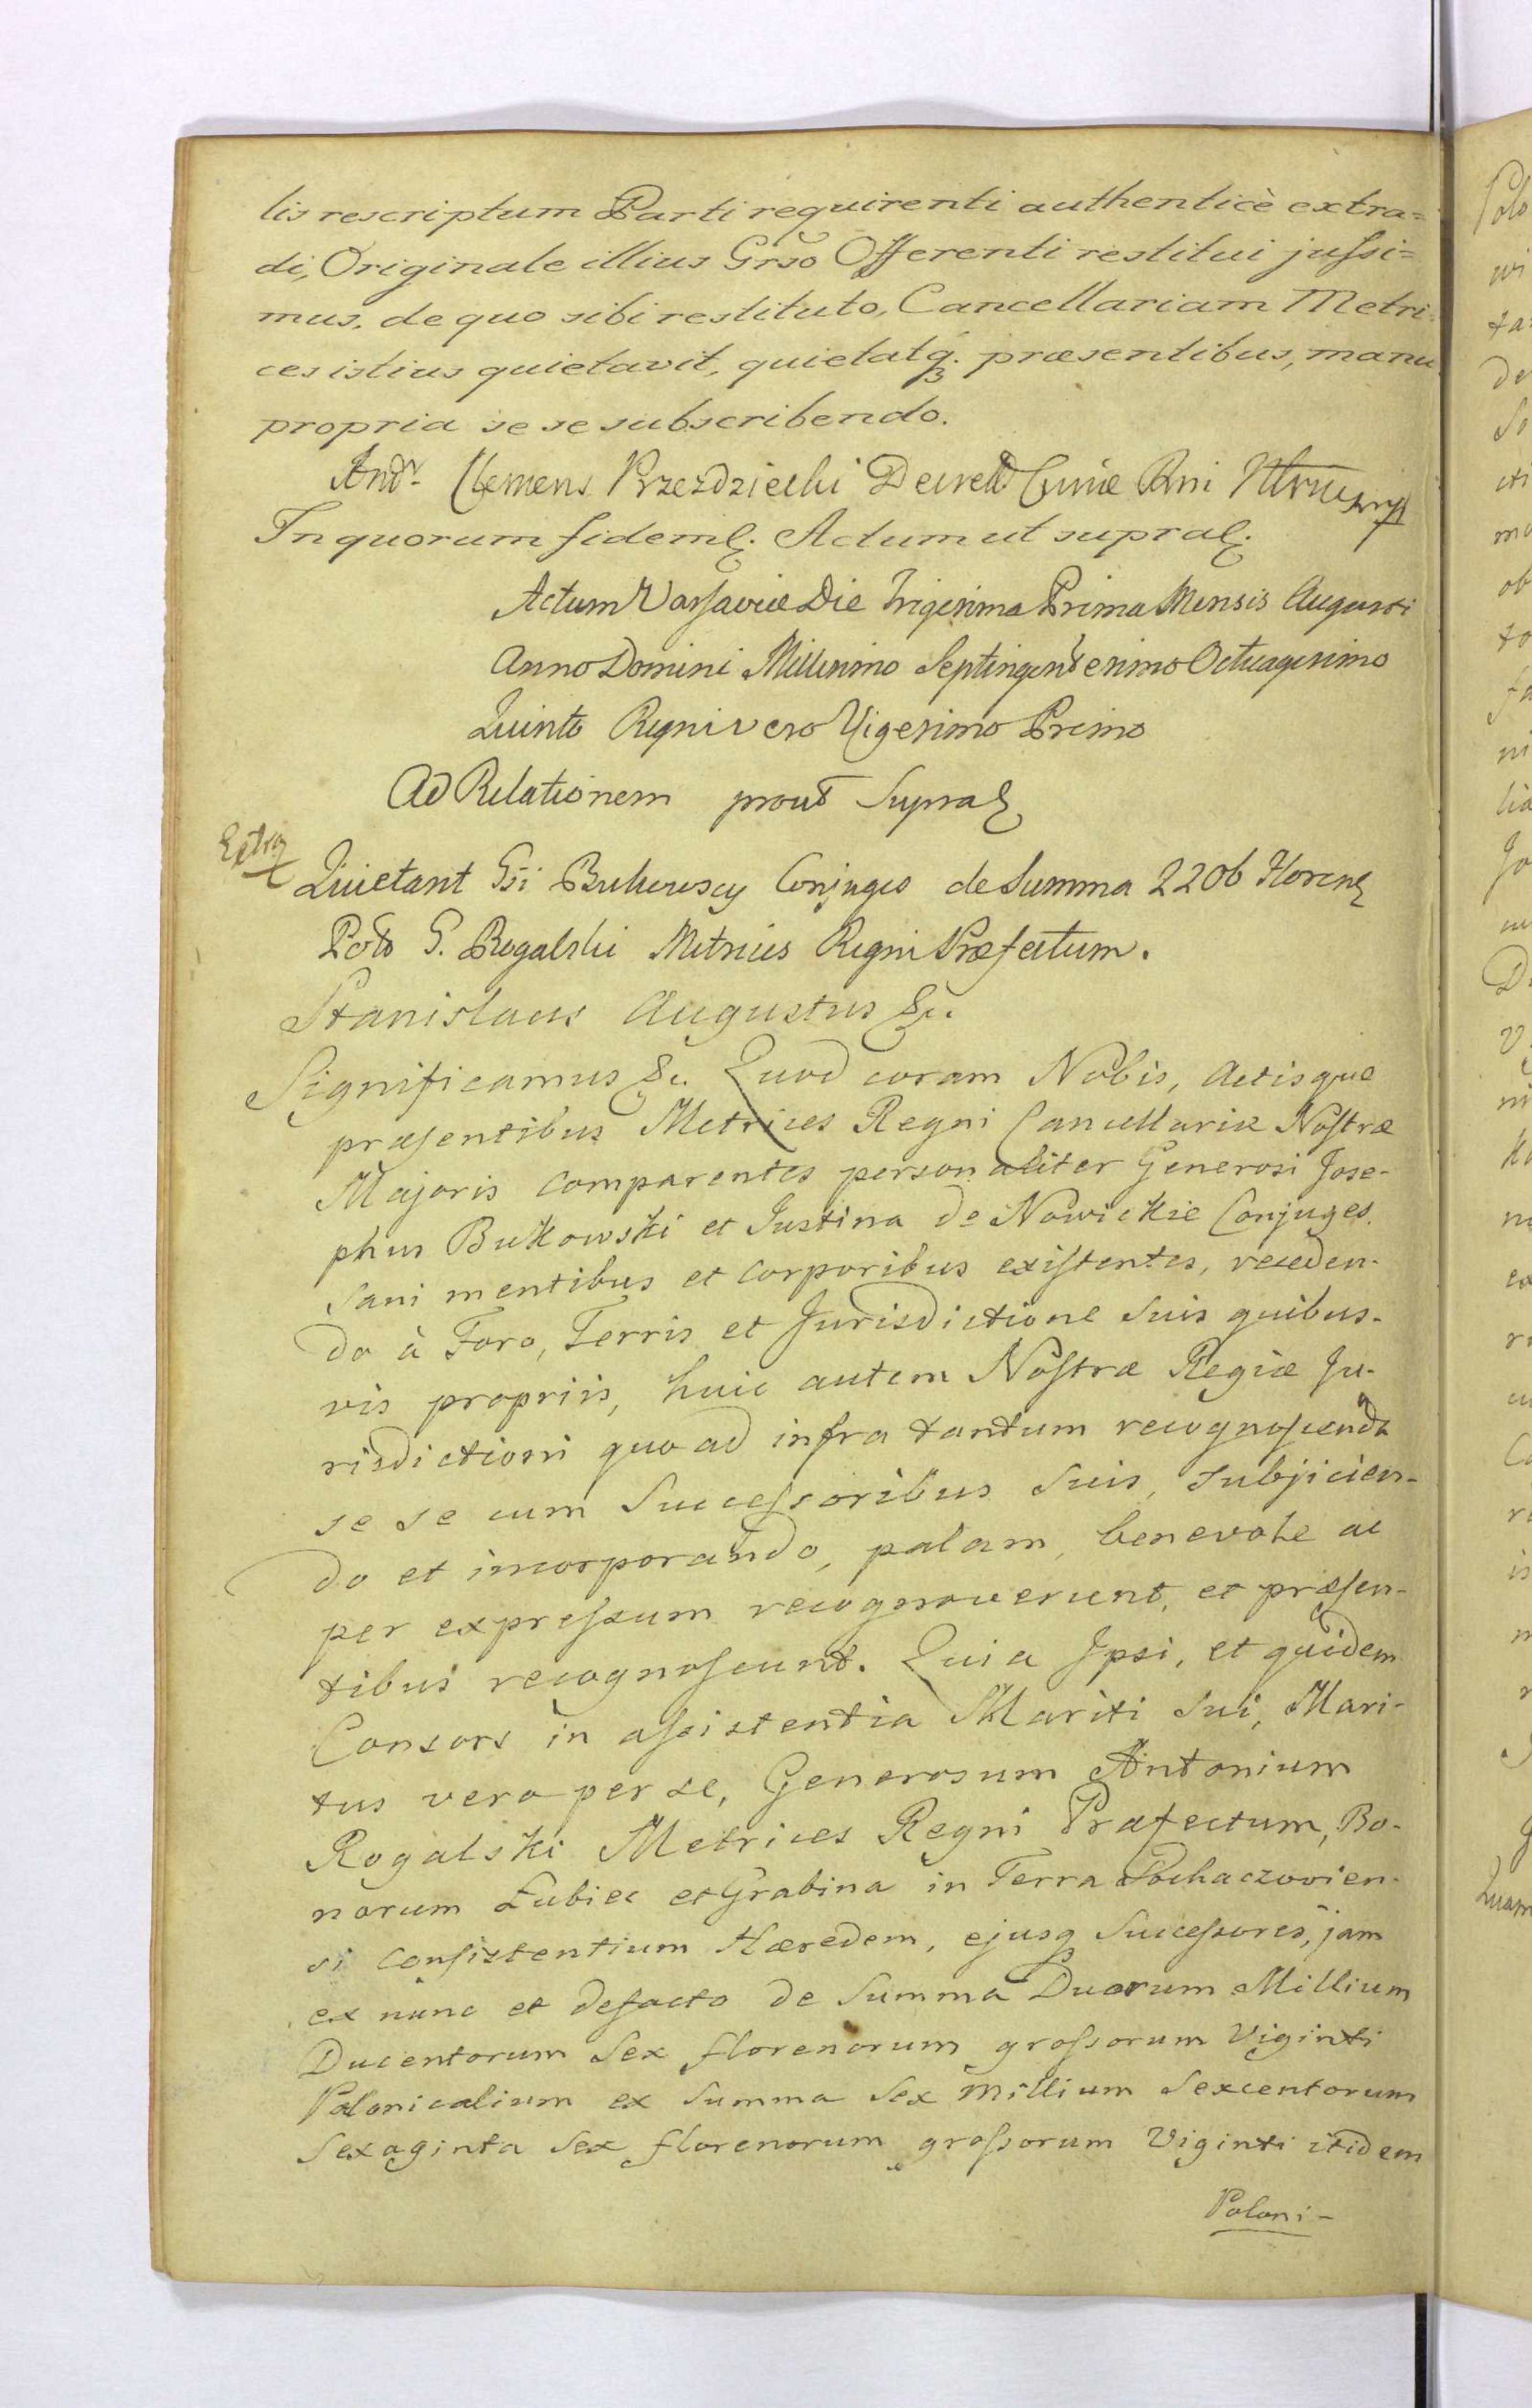 lis rescriptum Parti requirenti authenticè extra=
di, Originale illius Grso Offerenti restitui jussi=
mus, de quo sibi restituto, Cancellariam Metri
ces istius quietavit, quietatq3. præsentibus, manu
propria se se subscribendo.
Andr. Clemens Przezdziecki Curiæ Rni
In quorum fidem &. Actum ut supra &.
Actum Varsaviæ Die Trigesima Prima Mensis Augusti
Anno Domini Millesimo Septingentesimo Octuagesimo
Quinto Regni vero Vigesimo Primo
Ad Relationem prout Supra &
Extra
Quietant Gsi Bukowscy Conjuges de Summa 2206 Floren
Polo G. Rogalski Metrices Regni Præfectum.
Stanislaus Augustus &c.
Significamus &c. Quod coram Nobis, Actisque
præsentibus Metrices Regni Cancellariæ Nostræ
Majoris comparentes personaliter Generosi Jose-
phus Bukowski et Justina de Nowickie Conjuges
sani mentibus et corporibus existentes, receden-
do à Foro, Terris et Jurisdictione suis quibus-
vis propriis, huic autem Nostræ Regiæ Ju-
risdictioni quo ad infra tantum recognoscenda
se se cum Successoribus suis, subjicien-
do et incorporando, palam, benevole ac
per expressum recognoverunt, et præsen-
tibus recognoscunt. Quia Ipsi, et quidem
Consors in assistentia Mariti sui, Mari-
tus vero per se, Generosum Antonium
Rogalski Metrices Regni Præfectum, Bo-
norum Łubiec et Grabina in Terra Sochaczovien-
si consistentium Hæredem, ejusq3 Successores, jam
ex nunc et defacto de Summa Duorum Millium
Ducentorum Sex florenorum grossorum Viginti
Polonicalium ex Summa Sex Millium Sexcentorum
Sexaginta Sex florenorum grossorum Viginti itidem
Poloni-